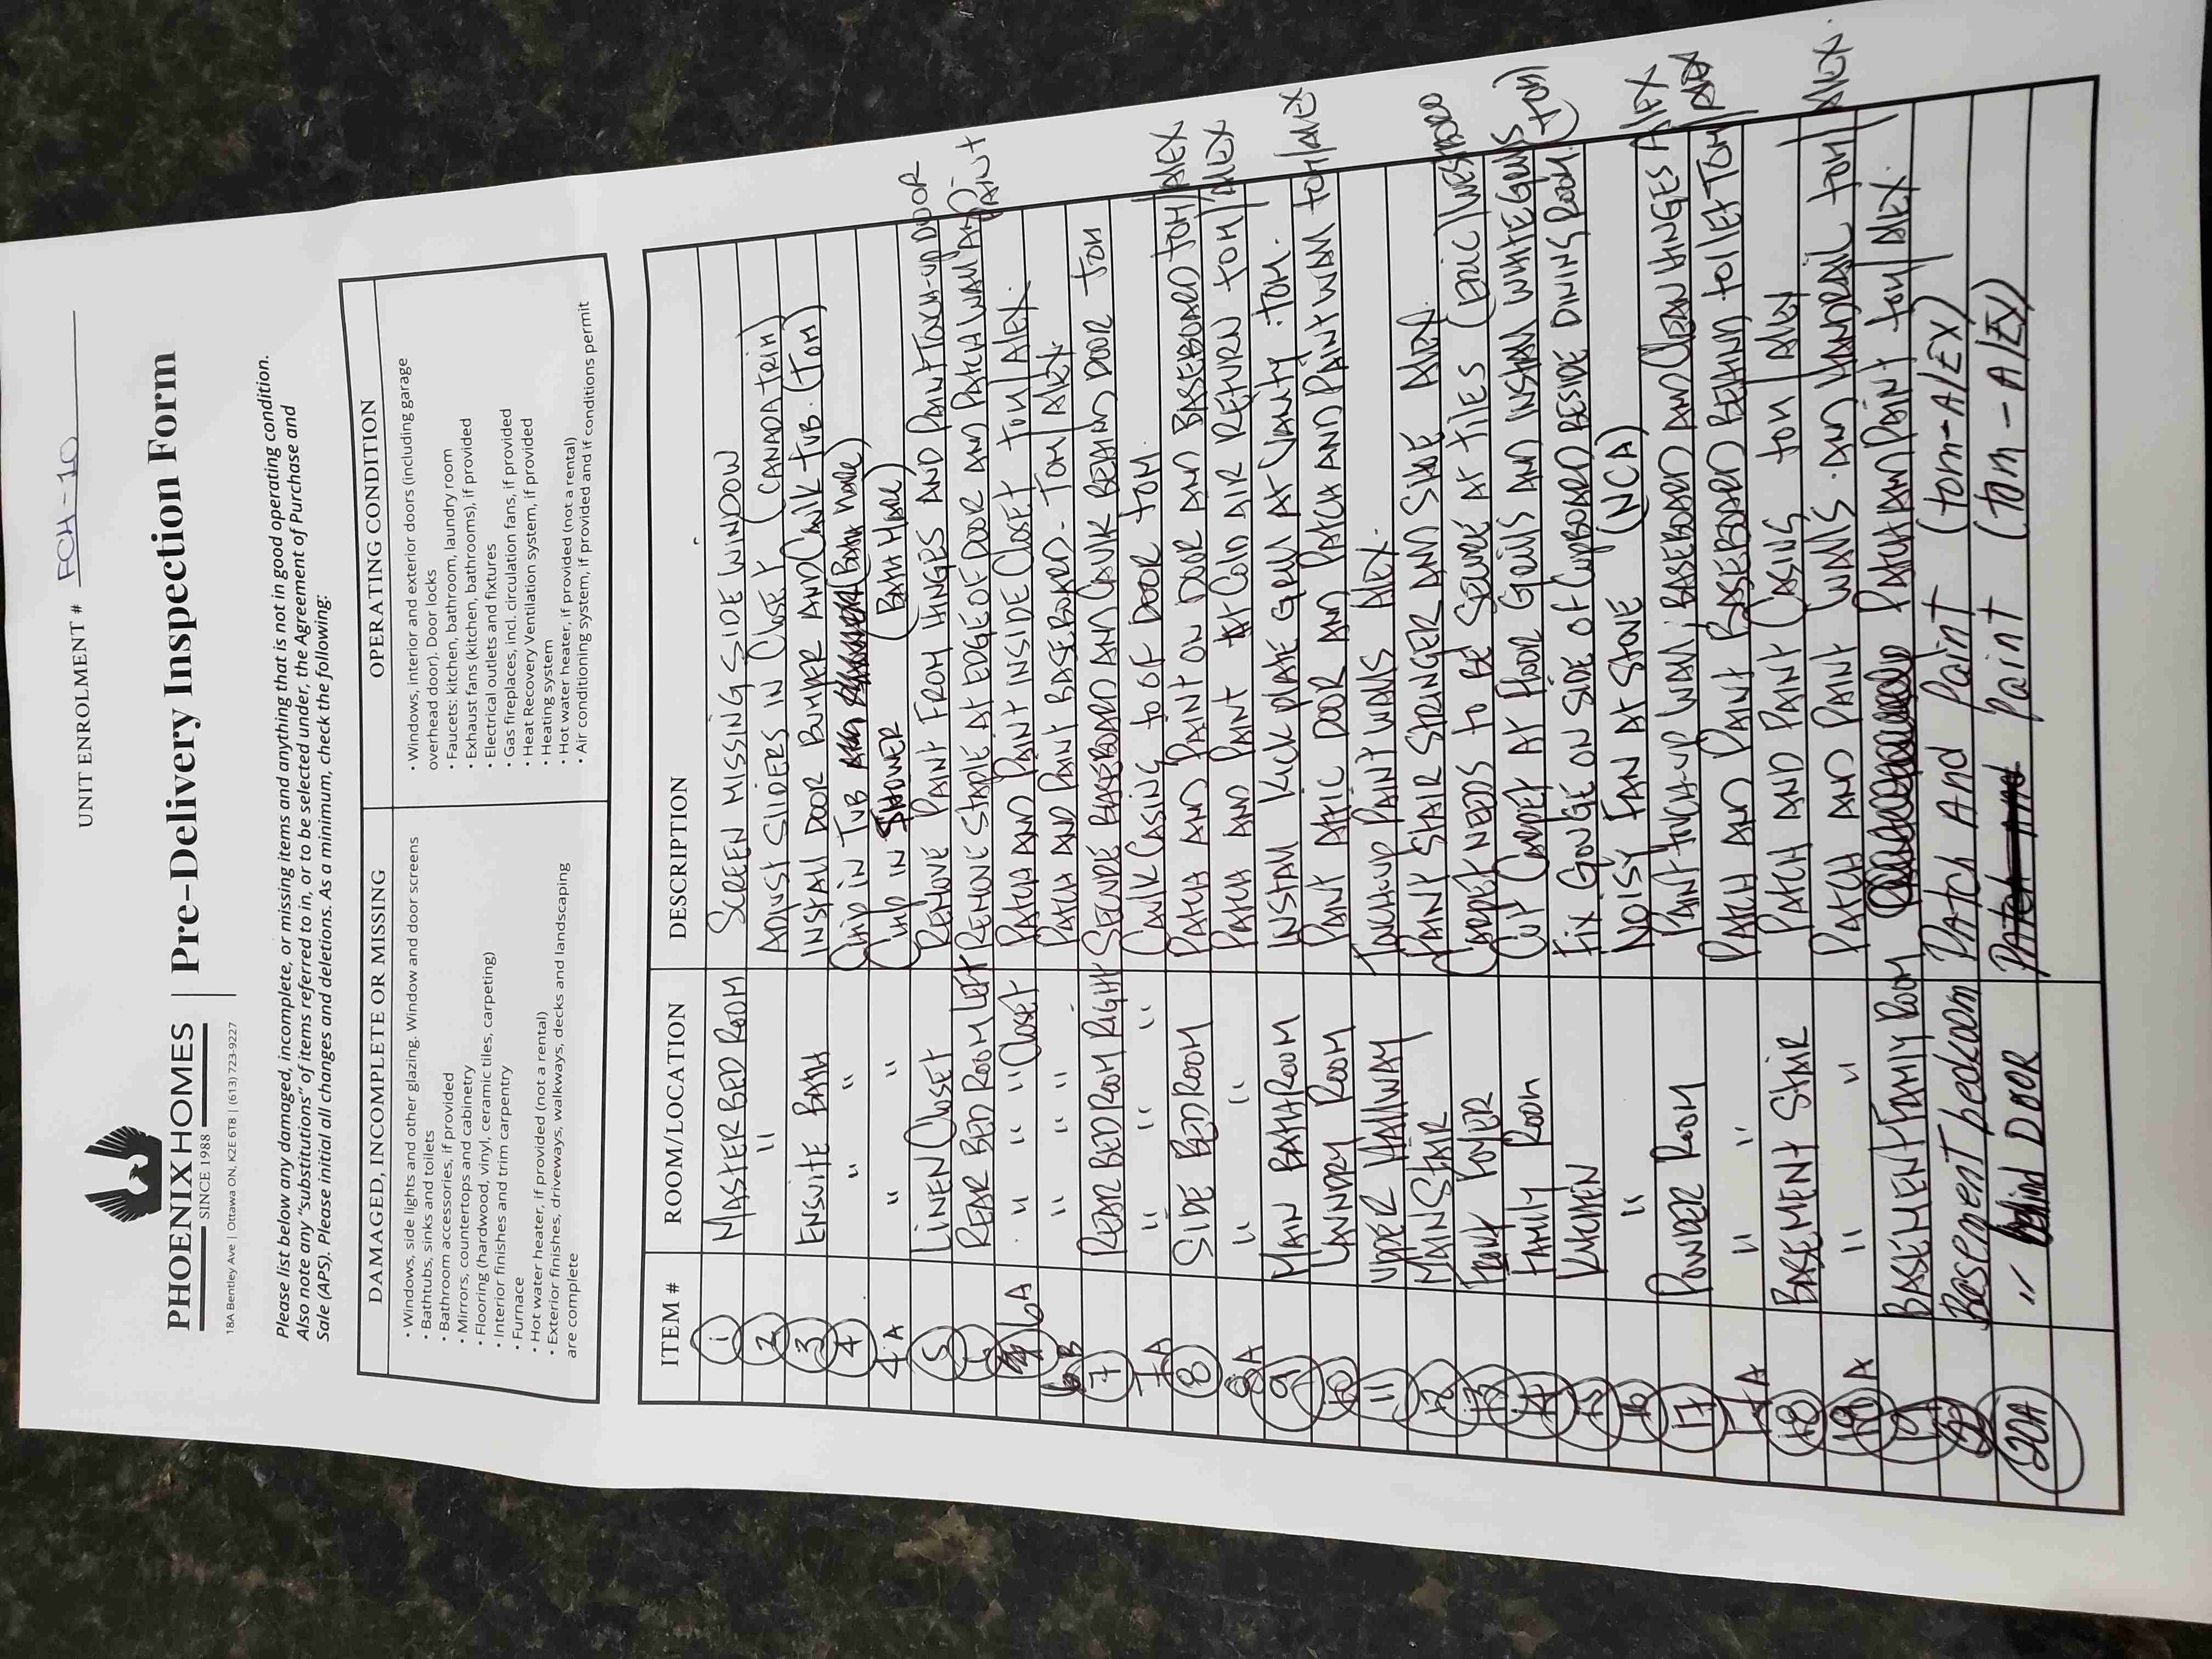 UNIT ENROLMENT # FCH-10
PHOENIX HOMES
SINCE 1988
Pre-Delivery Inspection Form
18A Bentley Ave | Ottawa ON, K2E 6T8 | (613) 723-9227
Please list below any damaged, incomplete, or missing items and anything that is not in good operating condition.
Also note any "substitutions" of items referred to in, or to be selected under, the Agreement of Purchase and
Sale (APS). Please initial all changes and deletions. As a minimum, check the following:
DAMAGED, INCOMPLETE OR MISSING
• Windows, side lights and other glazing. Window and door screens
• Bathtubs, sinks and toilets
• Bathroom accessories, if provided
• Mirrors, countertops and cabinetry
• Flooring (hardwood, vinyl, ceramic tiles, carpeting)
• Interior finishes and trim carpentry
• Furnace
• Hot water heater, if provided (not a rental)
• Exterior finishes, driveways, walkways, decks and landscaping
are complete
OPERATING CONDITION
• Windows, interior and exterior doors (including garage
overhead door). Door locks
• Faucets: kitchen, bathroom, laundry room
• Exhaust fans (kitchen, bathrooms), if provided
• Electrical outlets and fixtures
• Gas fireplaces, incl. circulation fans, if provided
• Heat Recovery Ventilation system, if provided
• Heating system
• Hot water heater, if provided (not a rental)
• Air conditioning system, if provided and if conditions permit
ITEM # ROOM/LOCATION DESCRIPTION
1 MASTER BED ROOM SCREEN MISSING SIDE WINDOW
2 " ADJUST SLIDERS IN CLOSET (CANADA TRIM)
3 ENSUITE BATH INSTALL DOOR BUMPER AND CAULK TUB. (TOM)
4 " " CHIP IN TUB (BATH MAGIC)
4A " " CHIP IN SHOWER (BATH MAGIC)
5 LINEN CLOSET REMOVE PAINT FROM HINGES AND PAINT TOUCH-UP DOOR
6 REAR BED ROOM LEFT REMOVE STAPLE AT EDGE OF DOOR AND PATCH WALL AND PAINT
6A " " " CLOSET PATCH AND PAINT INSIDE CLOSET TOM/ALEX.
6B " " " PATCH AND PAINT BASEBOARD - TOM/ALEX.
7 REAR BED ROOM RIGHT SECURE BASEBOARD AND CAULK BEHIND DOOR TOM
7A " " " CAULK CASING TO OF DOOR TOM.
8 SIDE BEDROOM PATCH AND PAINT ON DOOR AND BASEBOARD TOM/ALEX
8A " " PATCH AND PAINT AT COLD AIR RETURN TOM/ALEX
9 MAIN BATHROOM INSTALL KICK PLATE GRILL AT VANITY. TOM.
10 LAUNDRY ROOM PAINT ATTIC DOOR AND PATCH AND PAINT WALL TOM/ALEX
11 UPPER HALLWAY TOUCH-UP PAINT WALLS ALEX.
12 MAIN STAIR PAINT STAIR STRINGER AND SIDE ALEX.
13 FRONT FOYER CARPET NEEDS TO BE SECURE AT TILES (ERIC/WESTBORO
14 FAMILY ROOM CUT CARPET AT FLOOR GRILLS AND INSTALL WHITE GRILLS (TOM)
15 KITCHEN FIX GOUGE ON SIDE OF CUPBOARD BESIDE DINING ROOM.
16 " NOISY FAN AT STOVE (NCA)
17 POWDER ROOM PAINT TOUCH-UP WALL, BASEBOARD AND CLEAN HINGES ALEX
17A " " PATCH AND PAINT BASEBOARD BEHIND TOILET TOM/ALEX
18 BASEMENT STAIR PATCH AND PAINT CASING TOM/ALEX
18A " " PATCH AND PAINT WALLS. AND HANDRAIL TOM/ALEX.
19 BASEMENT FAMILY ROOM PATCH AND PAINT TOM/ALEX.
20 Basement bedroom PATCH And Paint (tom-AlEX)
20A " behind DOOR Paint (tom-AlEX)